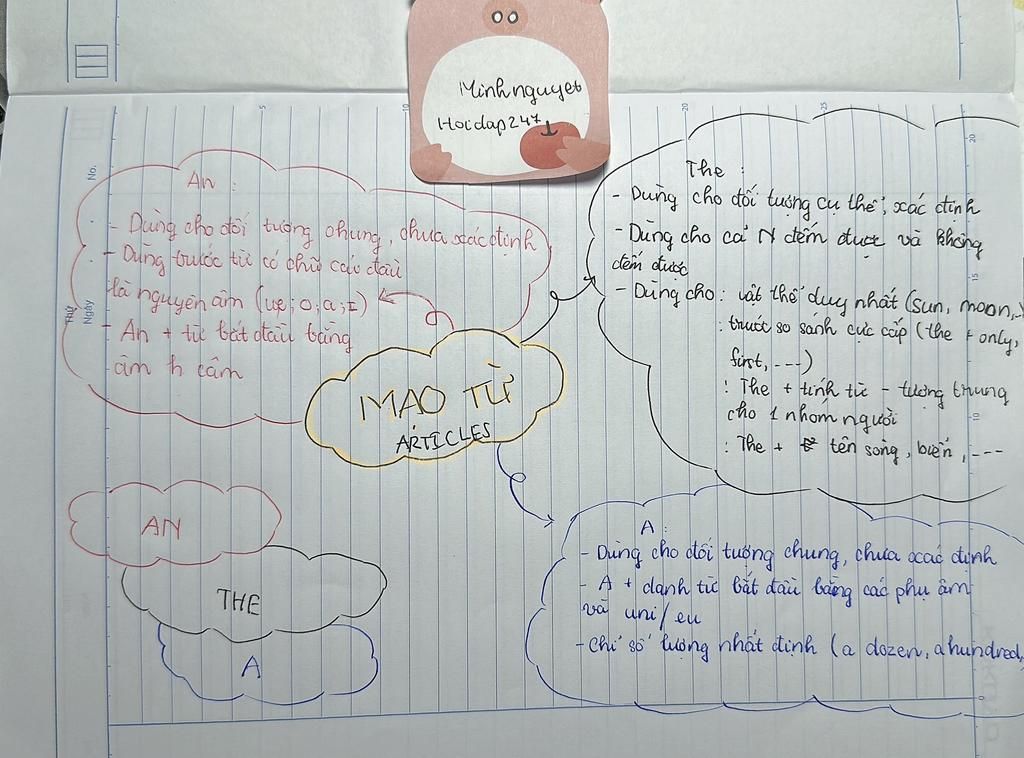 Minhnguyet
Hoidap247
An :
- Dùng cho đối tượng chung, chưa xác định
- Dùng trước từ có chữ cái đầu
là nguyên âm (ue; o; a; I)
- An + từ bắt đầu bằng
âm h câm
The :
- Dùng cho đối tượng cụ thể, xác định
- Dùng cho cả N đếm được và không
đếm được
- Dùng cho : vật thể duy nhất (sun, moon,
: trước so sánh cực cấp (the + only,
first, ---)
: The + tính từ - tượng trưng
cho 1 nhóm người
: The + tên sông, biển, ---
MẠO TỪ
ARTICLES
AN
THE
A
A :
- Dùng cho đối tượng chung, chưa xác định
- A + danh từ bắt đầu bằng các phụ âm
và uni/eu
- Chỉ số lượng nhất định (a dozen, a hundred,
No.
Thứ
Ngày
5
10
20
25
20
15
10
5
0